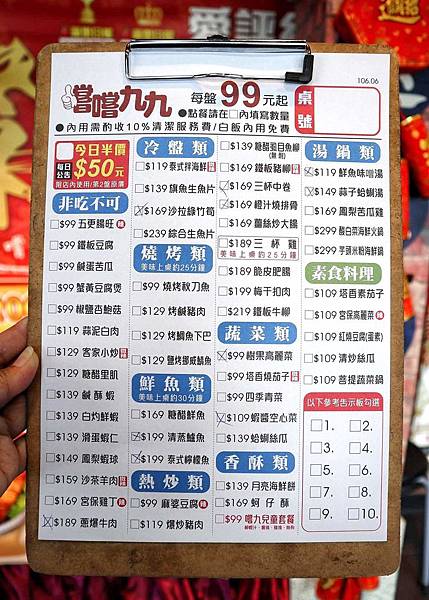 嚐嚐九九
每盤99元起
●點餐請在□內填寫數量
●內用需酌收10%清潔服務費/白飯內用免費
106.06
桌號
每日公告
今日半價
$50元
限店內使用/第2盤原價
非吃不可
□$99 五更腸旺 辣
□$99 鐵板豆腐
□$99 鹹蛋苦瓜
□$99 蟹黃豆腐煲
□$99 椒鹽杏鮑菇
□$119 蒜泥白肉
□$129 客家小炒
□$129 糖醋里肌
□$139 鹹酥蝦
□$139 白灼鮮蝦
□$139 滑蛋蝦仁
□$149 鳳梨蝦球
□$159 沙茶羊肉
□$169 宮保雞丁 辣
□$189 蔥爆牛肉
冷盤類
□$119 泰式拌海鮮
□$139 旗魚生魚片
□$169 沙拉綠竹筍
□$239 綜合生魚片
燒烤類
美味上桌約25分鐘
□$99 燒烤秋刀魚
□$129 烤鹹豬肉
□$129 烤鯛魚下巴
□$129 鹽烤挪威鯖魚
鮮魚類
美味上桌約30分鐘
□$169 糖醋鮮魚
□$199 清蒸鱸魚
□$199 泰式檸檬魚
熱炒類
□$99 麻婆豆腐 辣
□$119 爆炒豬肉
□$139 糖醋虱目魚柳
(無刺)
□$169 鐵板豬柳
□$169 三杯中卷
□$169 橙汁燒排骨
□$169 薑絲炒大腸
□$189 三杯雞
美味上桌約25分鐘
□$189 脆皮肥腸
□$199 梅干扣肉
□$219 鐵板牛柳
蔬菜類
□$99 樹果高麗菜
□$99 塔香燒茄子
□$99 四季肉青菜
□$109 蝦醬空心菜
□$139 蛤蜊絲瓜
香酥類
□$139 月亮海鮮餅
□$169 蚵仔酥
□$99 嚐九兒童套餐
湯鍋類
□$119 鮮魚味噌湯
□$149 蒜子蛤蜊湯
□$169 鳳梨苦瓜雞
□$299 酸白菜海鮮火鍋
□$299 芋頭米粉海鮮鍋
素食料理
□$109 塔香素茄子
□$109 宮保高麗菜 辣
□$109 紅燒豆腐(蛋素)
□$109 清炒絲瓜
□$109 菩提蔬菜鍋
以下參考告示板勾選
□1. □2.
□3. □4.
□5. □6.
□7. □8.
□9. □10.